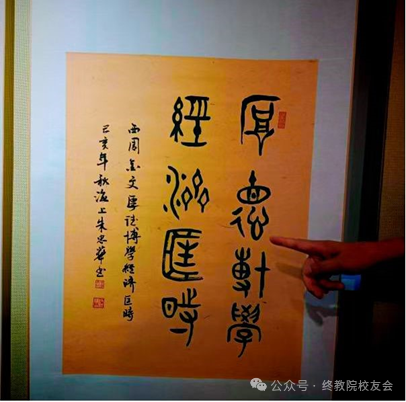 厚德博學
經濟匡時
西周金文 厚德博學經濟匡時
己亥年秋
公众号 · 终教院校友会